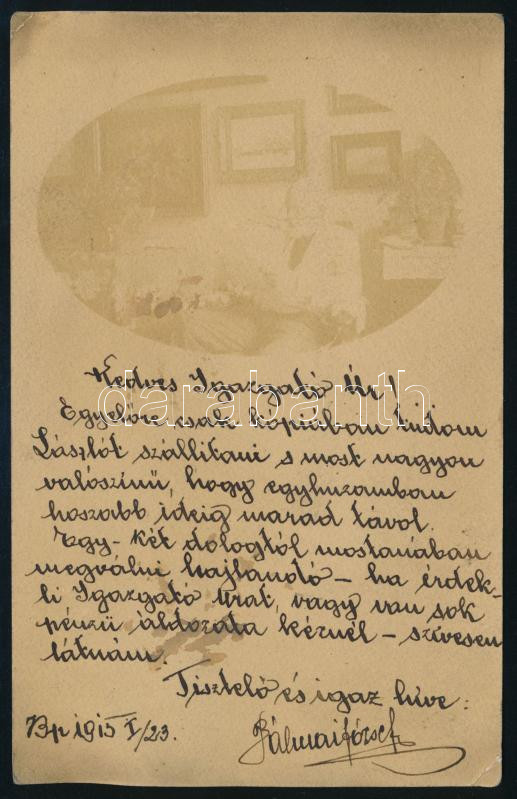 Kedves Igazgató Úr!
Egyelőre csak kópiában tudom
Lászlót szállitani s most nagyon
valószinű, hogy egyhuzamban
hosszabb ideig marad távol.
Egy-két dologtól mostanában
megválni hajlandó – ha érdek-
li Igazgató Urat, vagy van sok
pénzű áldozata kéznél – szivesen
látnám.
Tisztelő és igaz híve:
Bp 1915 I/23.
darabanth